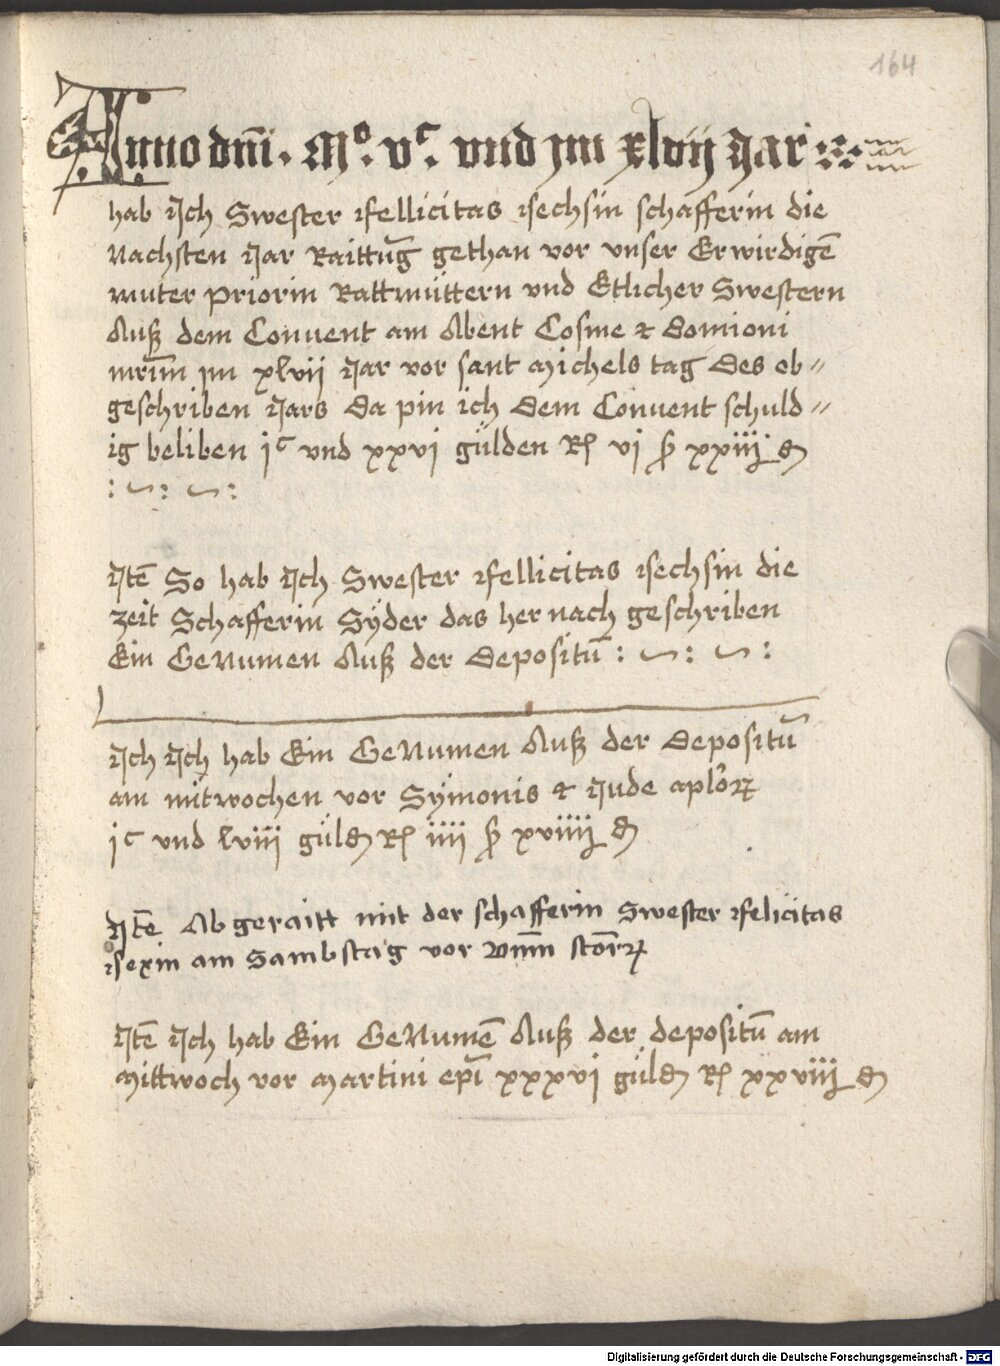 164
Anno dn̄i. M°. vᶜ. vnd jm xlvij Jar
hab Jch Swester ffellicitas sechsin schafferin die
Nachsten Jar Raittūg gethan vor vnser Erwirdigē
muter priorin Rattmüttern vnd Etlicher Swestern
Auß dem Conuent am Abent Cosme & domioni
mr̄im jm xlvij Jar vor sant Michels tag des ob〃
geschriben Jars da pin ich dem Conuent schuld〃
ig beliben jᶜ vnd xxvj gülden R vj ß xxiij d
Jtē So hab Jch Swester ffellicitas sechsin die
zeit Schafferin Syder das her nach geschriben
Ein GeNumen Auß der depositū
Jch Jch hab Ein GeNumen Auß der depositū
am mitwochen vor Symonis & Jude aplōꝝ
jᶜ vnd lviij güld R iiij ß xviiij d
Jtē Abgeraitt mit der schafferin Swester ffelicitas
sexin am Sambstag vor om̄m sctōꝝ
Jtē Jch hab Ein GeNumē Auß der depositū am
Mittwoch vor Martini ep̄i xxxvj güld R xxviij d
Digitalisierung gefördert durch die Deutsche Forschungsgemeinschaft - DFG